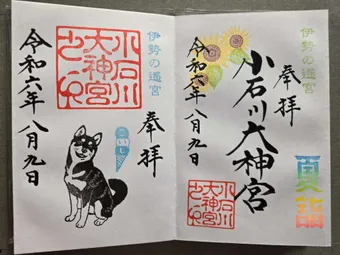 伊勢の遥宮
奉拝
小石川大神宮
令和六年八月九日
夏詣
小石川
大神宮
伊勢の遥宮
奉拝
小石川
大神宮
令和六年八月九日